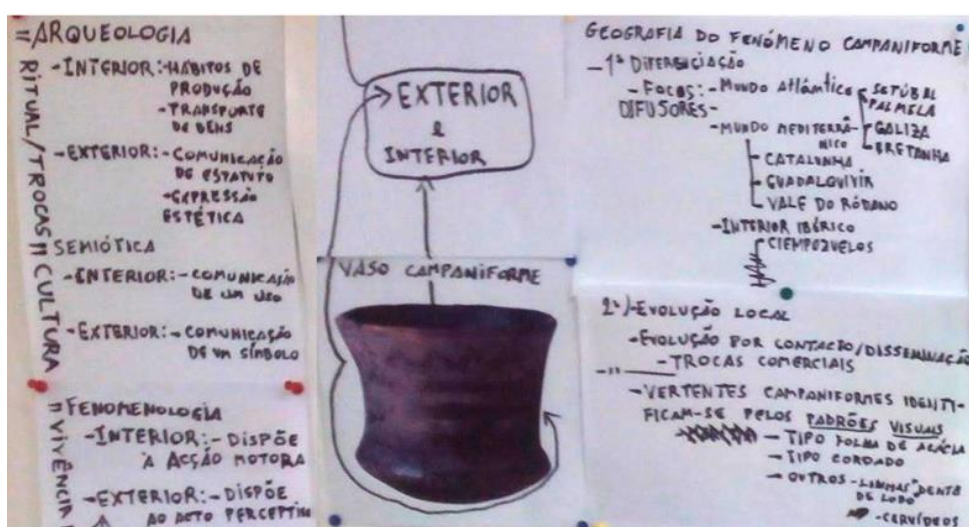 =ARQUEOLOGIA
RITUAL/TROCAS // CULTURA
-INTERIOR:-HÁBITOS DE
PRODUÇÃO
-TRANSPORTE
DE BENS
-EXTERIOR:-COMUNICAÇÃO
DE ESTATUTO
-EXPRESSÃO
ESTÉTICA
SEMIÓTICA
-INTERIOR:-COMUNICAÇÃO
DE UM USO
-EXTERIOR:-COMUNICAÇÃO
DE UM SÍMBOLO
=FENOMENOLOGIA
=VIVÊNCIA
-INTERIOR:-DISPÕE
À ACÇÃO MOTORA
-EXTERIOR:-DISPÕE
AO ACTO PERCEPTIVO
EXTERIOR
e
INTERIOR
VASO CAMPANIFORME
GEOGRAFIA DO FENÓMENO CAMPANIFORME
-1ª DIFERENCIAÇÃO
-FOCOS:-MUNDO ATLÂNTICO
DIFUSORES-
SETÚBAL
PALMELA
GALIZA
BRETANHA
-MUNDO MEDITERRÂ-
NICO
CATALUNHA
GUADALQUIVIR
VALE DO RÓDANO
-INTERIOR IBÉRICO
CIEMPOZUELOS
2ª)-EVOLUÇÃO LOCAL
-EVOLUÇÃO POR CONTACTO/DISSEMINAÇÃO
-"-TROCAS COMERCIAIS
-VERTENTES CAMPANIFORMES IDENTI-
FICAM-SE PELOS PADRÕES VISUAIS
-TIPO FOLHA DE ACÁCIA
-TIPO CORDADO
-OUTROS-LINHAS "DENTE
DE LOBO
-CERVÍDEOS